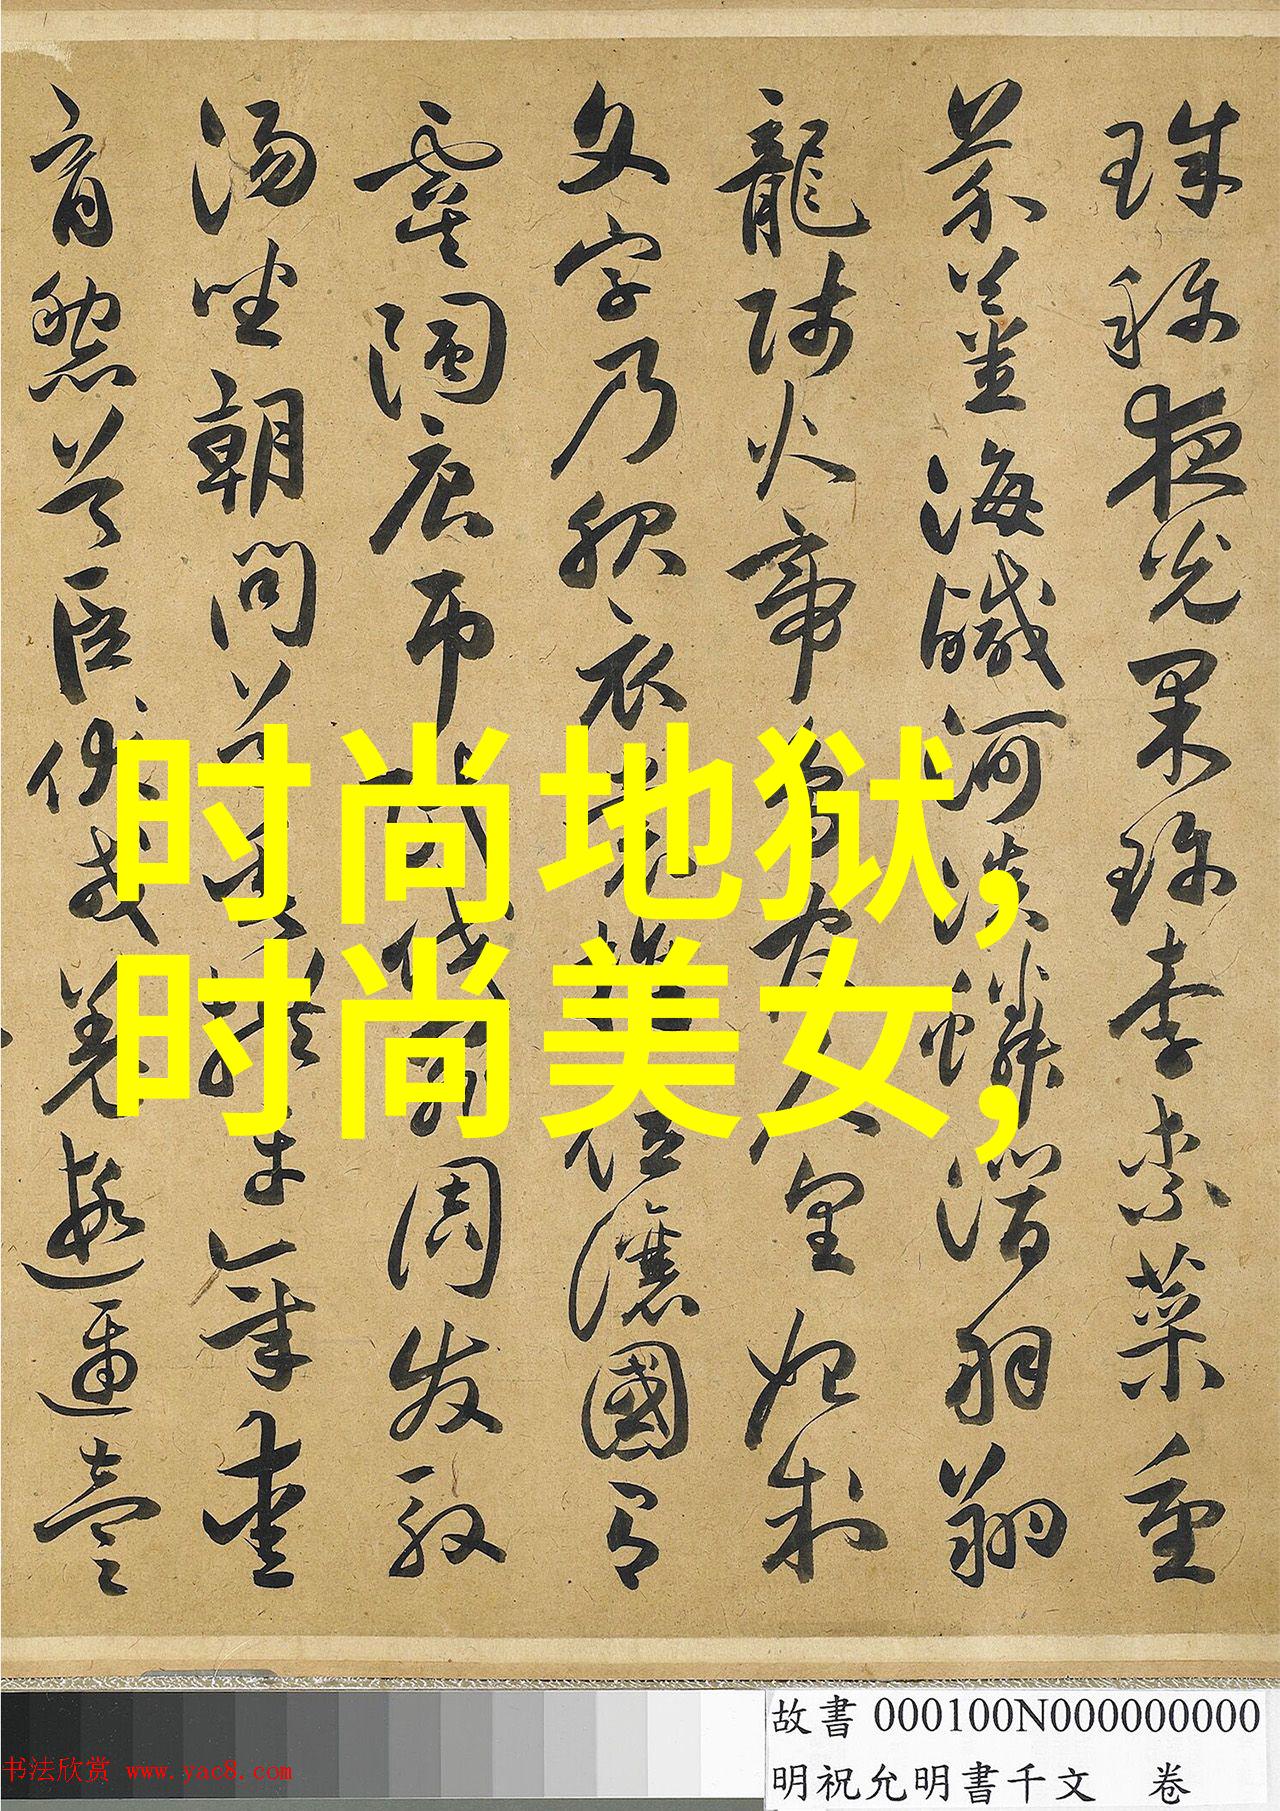 珠称夜光果珍李柰菜重
芥薑海鹹河淡鱗潛羽翔
龍師火帝鳥官人皇始制
文字乃服衣裳推位讓國有
虞陶唐弔民伐罪周发殷
湯坐朝問道垂拱平章愛
育黎首臣伏戎羌遐邇壹
时尚地狱,
时尚美女,
故書 000100N000000000
明祝允明書千文 卷
书法欣赏 www.yac8.com